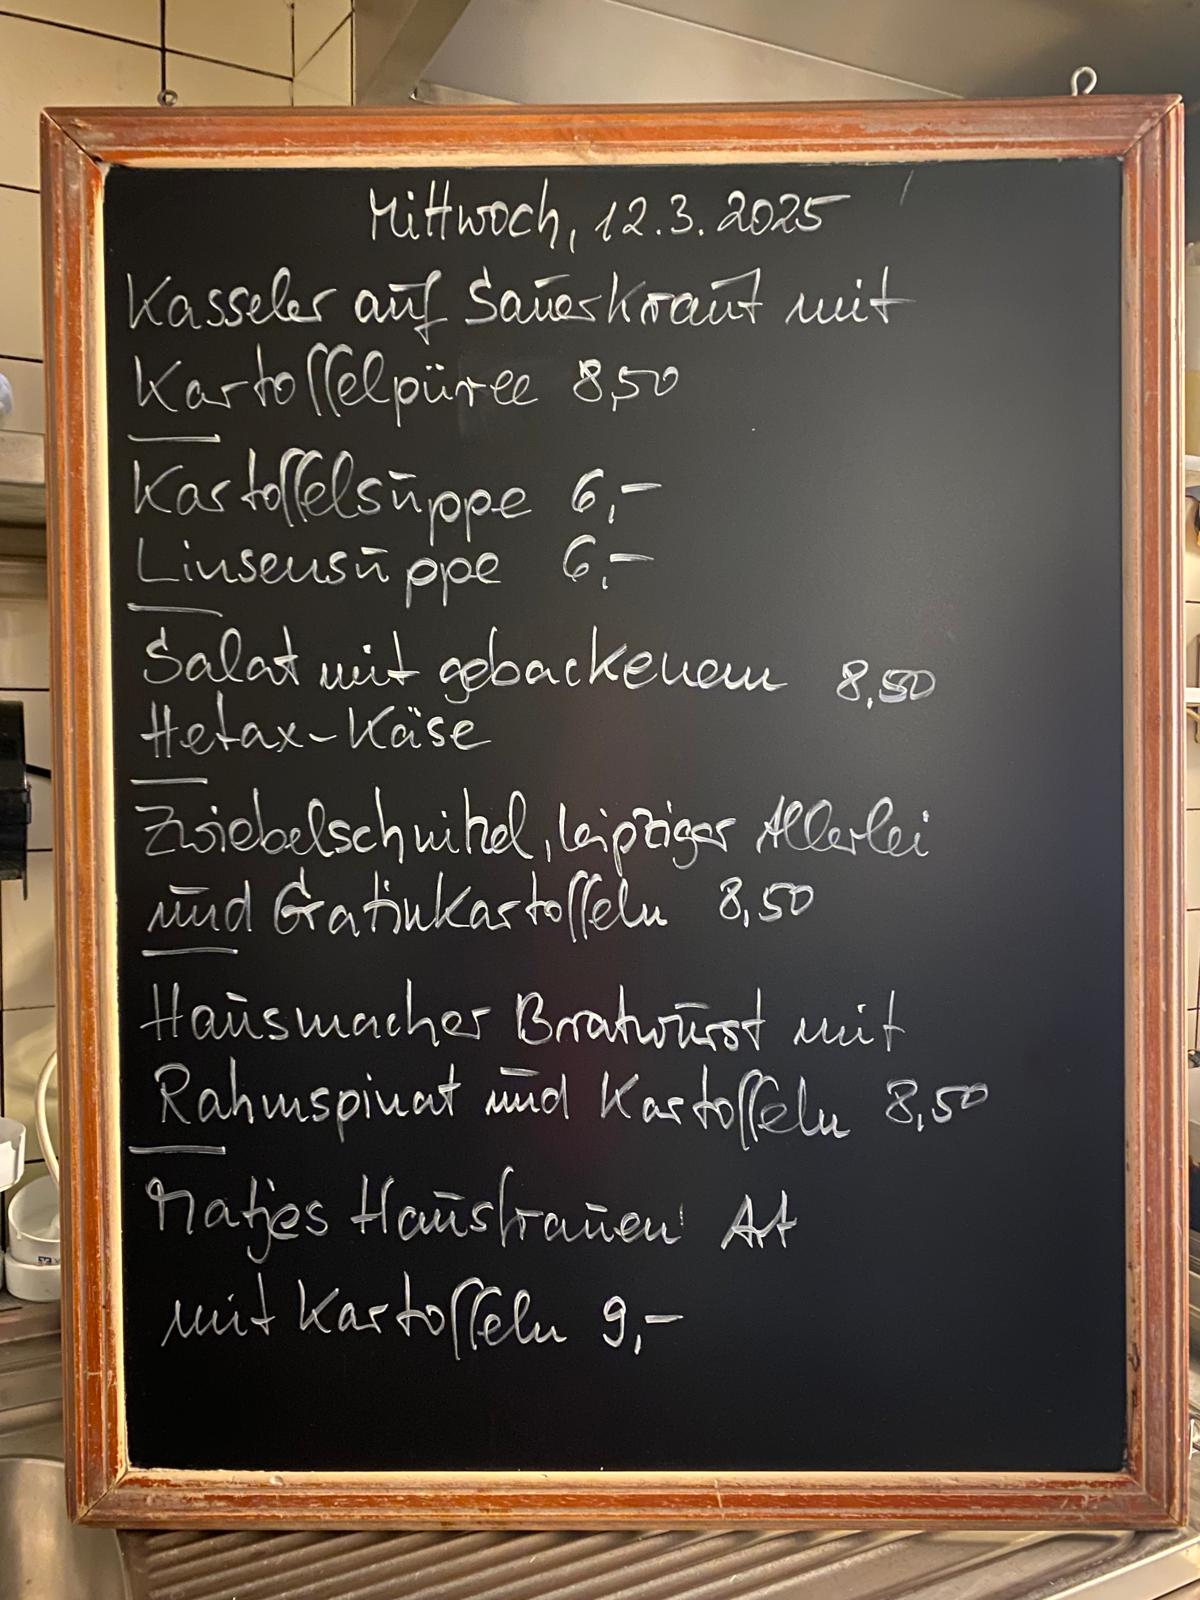 Mittwoch, 12.3.2025
Kasseler auf Sauerkraut mit
Kartoffelpüree 8,50
Kartoffelsuppe 6,-
Linsensuppe 6,-
Salat mit gebackenem 8,50
Hetax-Käse
Zwiebelschnitzel, Leipziger Allerlei
und Gratinkartoffeln 8,50
Hausmacher Bratwurst mit
Rahmspinat und Kartoffeln 8,50
Matjes Hausfrauen Art
mit Kartoffeln 9,-